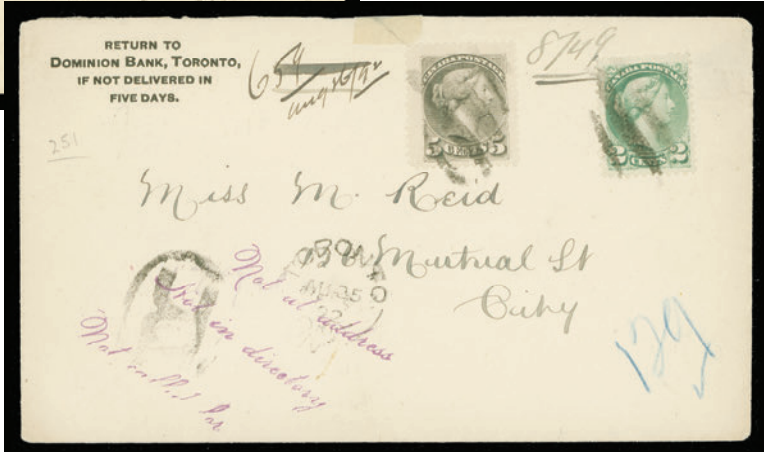 RETURN TO
DOMINION BANK, TORONTO,
IF NOT DELIVERED IN
FIVE DAYS.
654
Aug 26/92
8749
CANADA POSTAGE
5 CENTS 5
CANADA POSTAGE
2 CENTS 2
251
Miss M. Reid
Mutual St
City
TORONTO
AU 25
R
Not at address
Not in directory
Not called for
129